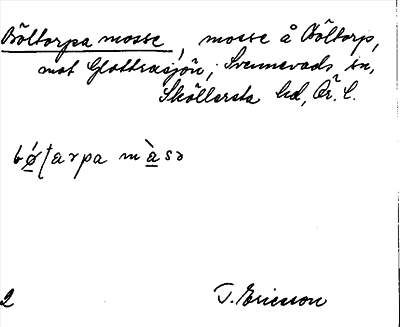 Böltorpa mosse, mosse å Böltorp,
mot Glottrasjön, Svennevads sn,
Sköllersta hd, Ör. l.
bǿʈarpa mà̱sə
2 T. Ericsson